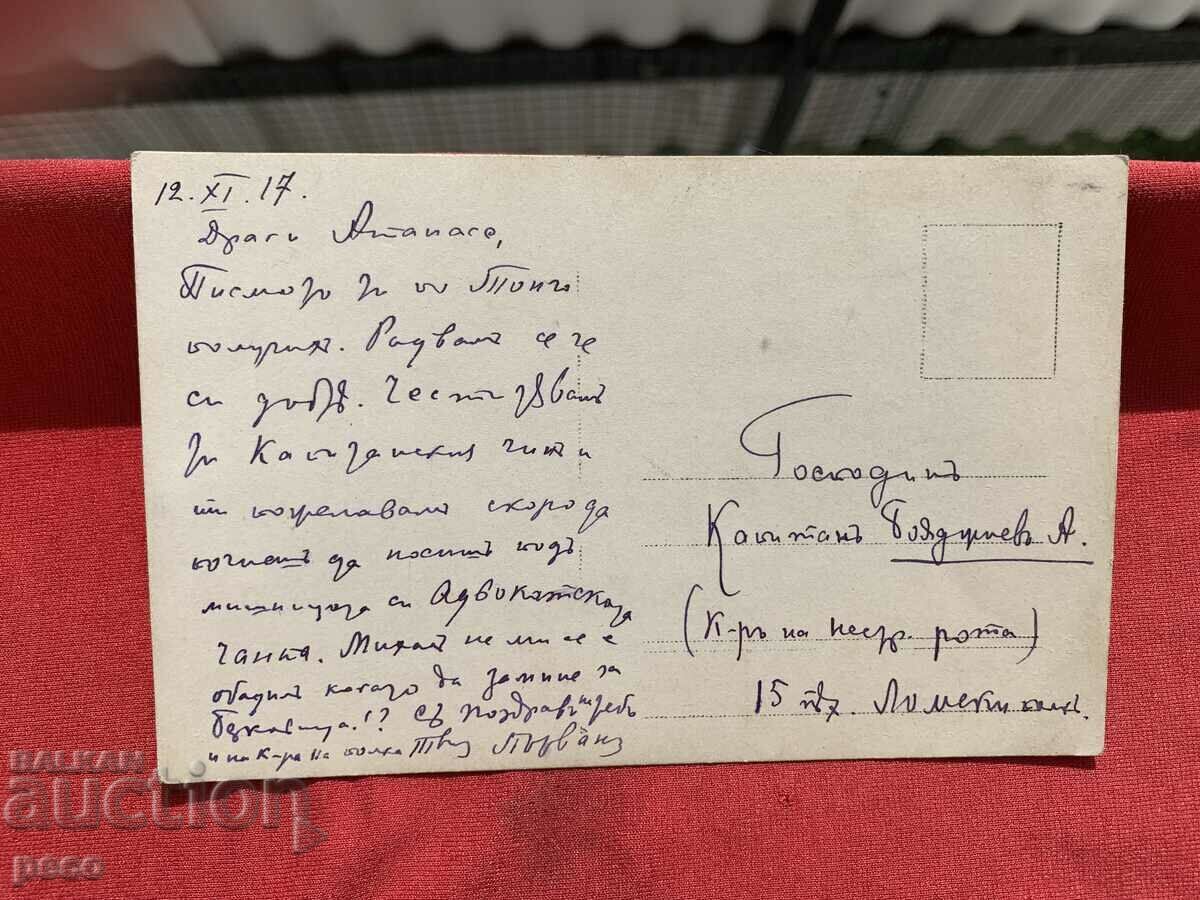 12.XI.17.
Драги Атанасе,
Писмото ти от
получихъ. Радвамъ се че
си добре. Честитявамъ
ти Капитанския чинъ и
ти пожелавамъ скоро да
почнешъ да носишъ подъ
мишницата си Адвокатската
чанта. Михаил не ми се е
обадилъ когато да замине за
!? Съ поздравъ на тебъ
и на К-ра на полка Твой Първанъ
Господинъ
Капитанъ Бояджиевъ А.
(К-ръ на нестр. рота)
15 пѫх. Ломски полкъ.
BALKAN
auction
peso